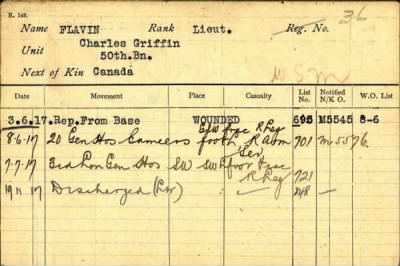 R. 149.
36
Name FLAVIN Rank Lieut. Reg. No.
Charles Griffin
Unit 50th.Bn.
Next of Kin Canada
W S M
Date Movement Place Casualty List No. Notified N/K O. W.O. List
3.6.17. Rep.From Base WOUNDED 695 M5545 8-6
G/W frac R Leg
8-6-17 20 Gen Hos Camiers foot R arm 701 M 5576
Sev
7-7-17 3rd Lon Gen Hos SW frac
R Leg 721
19 11 17 Discharged 848 -